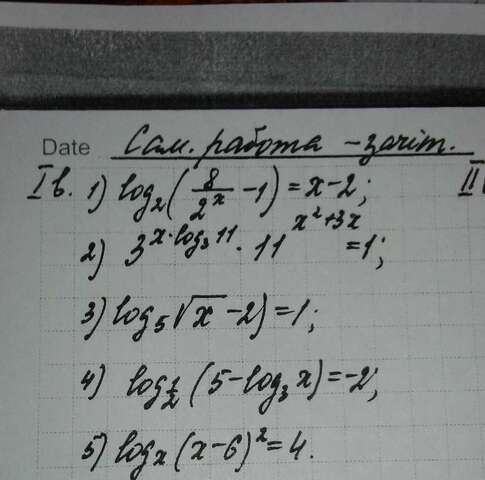 Date Сам. работа - зачіт.
I в. 1) log₂(8/2ˣ - 1) = x - 2; II
2) 3^(x·log₃11) · 11^(x²+3x) = 1;
3) log₅√x - 2) = 1;
4) log_(1/2)(5 - log₃x) = -2;
5) logₓ(x - 6)² = 4.